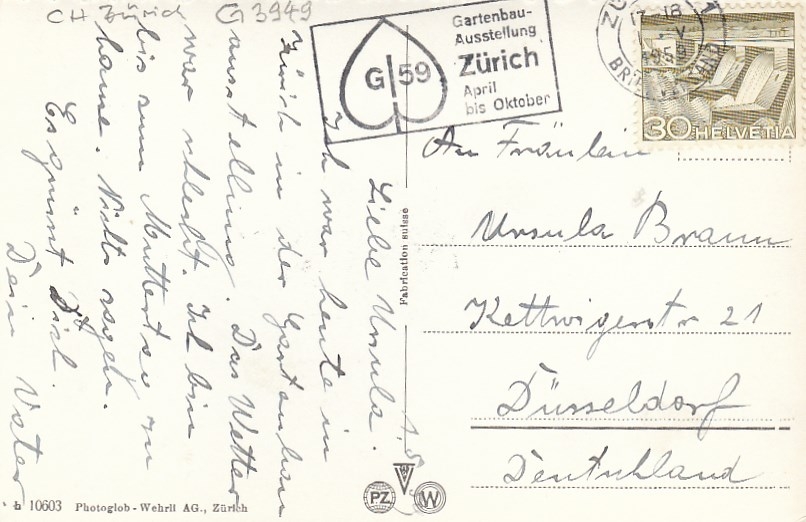 CH Zürich
G 3949
Gartenbau-
Ausstellung
G|59
Zürich
April
bis Oktober
30 HELVETIA
An Fräulein
Ursula Braun
Kettwigerstr 21
Düsseldorf
Deutschland
Liebe Ursula.
Ich war heute in
Zürich in der Gartenbau
ausstellung. Das Wetter
war schlecht. Ich bin
bis zum Muttertag zu
hause. Nichts sagen.
Es grüsst Dich.
Dein Vater
Fabrication suisse
PZ
W
b 10603 Photoglob-Wehrli AG., Zürich